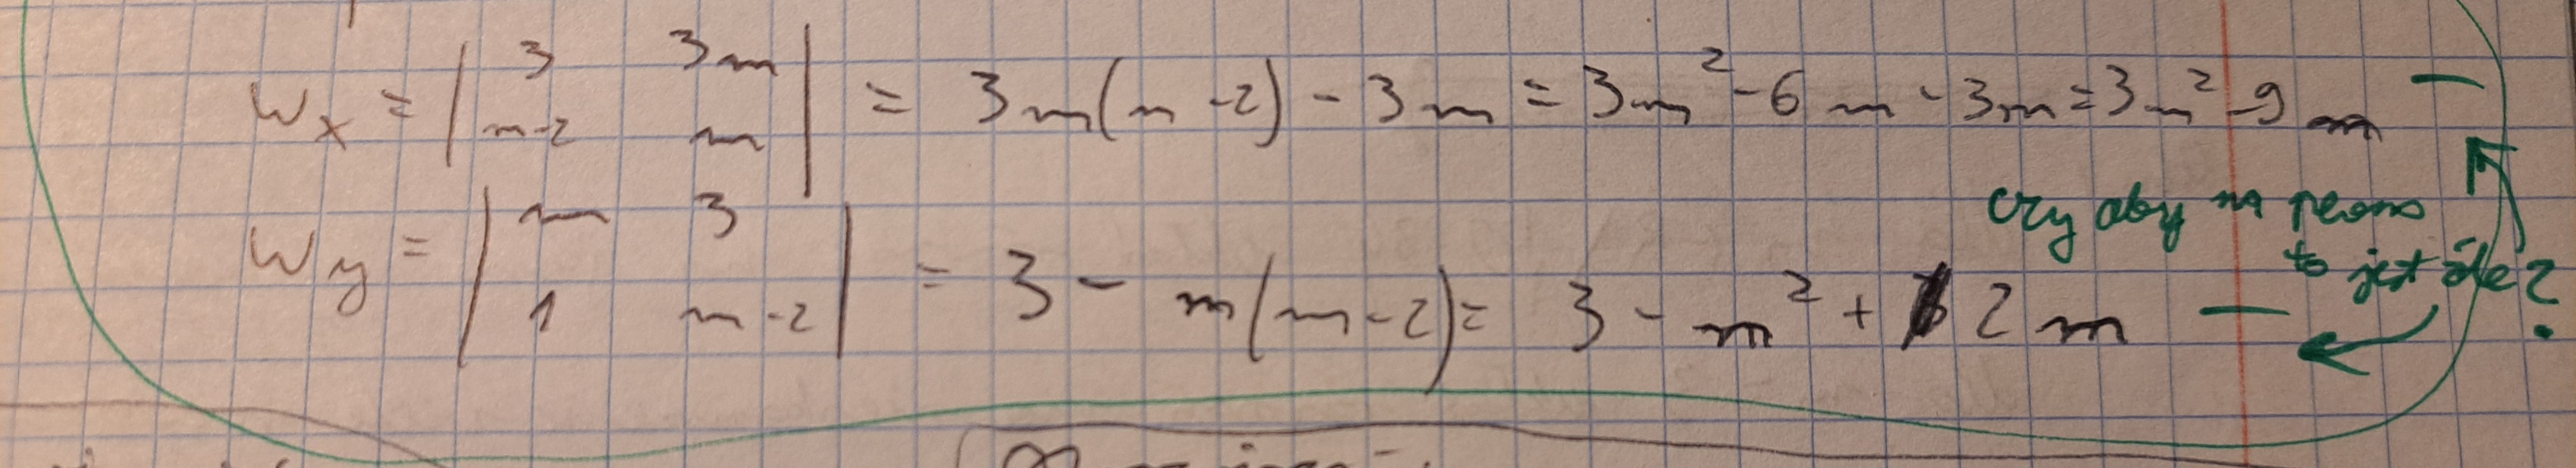 Wx = | 3 3m | = 3m(m-2) - 3m = 3m² - 6m - 3m = 3m² - 9m -
| m-2 m |
Wy = | m 3 | = 3 - m(m-2) = 3 - m² + 2m -
| 1 m-2 |
czy aby na pewno
to jest źle?